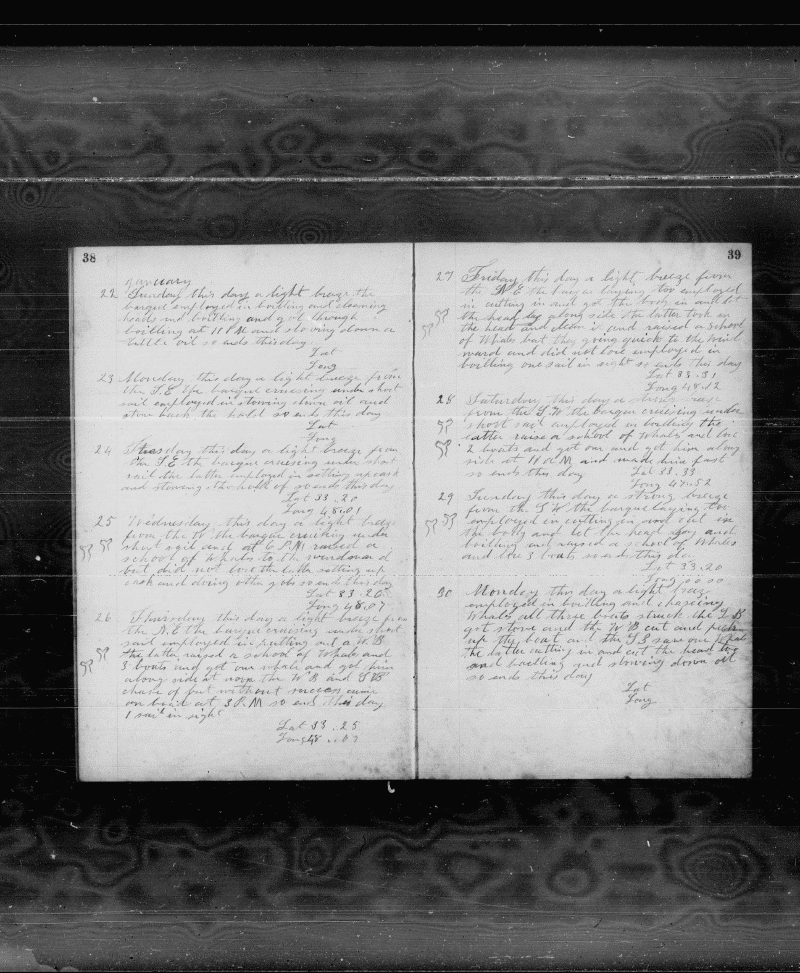 38
January
22 Sunday this day a light breeze the
barque employed in boilling and cleaning
heads and boilling and got through
boilling at 11 P M and stowing down a
little oil so ends this day
Lat
Long
23 Monday this day a light breeze from
the S.E the barque cruising under short
sail employed in stowing down oil and
stow back the hold so ends this day
Lat
Long
24 Tuesday this day a light breeze from
the S.E the barque cruising under short
sail the latter employed in setting up cask
and stowing the hold so ends this day
Lat 33.20
Long 48.01
25 Wednesday this day a light breeze
from the the barque cruising under
short sail and at 6 P.M raised a
school of Whales to the windward
but did not lore the latter setting up
cask and doing other jobs so ends this day
Lat 33.26
Long 48.07
26 Thursday this day a light breeze from
the N.E the barque cruising under short
sail employed in putting out a W B
the latter raised a school of Whale and
3 boats and got our whale and got him
along side at noon the W B and S B
chase of but without success came
on board at 3 P.M so ends this day
1 sail in sight
Lat 33..25
Long 48..07
39
27 Friday this day a light breeze from
the N E the barque laying too employed
in cutting in and got the body in and let
the head lay along side the latter took in
the head and clean it and raised a school
of Whales but they going quick to the wind
ward and did not lore employed in
boilling one sail in sight so ends this day
Lat 33.31
Long 48.12
28 Saturday this day a strong breeze
from the S.W the barque cruising under
short sail employed in boilling the
latter raise a school of Whales and lore
2 boats and got our and got him along
side at 11 A M and made him fast
so ends this day Lat 33.33
Long 47.52
29 Sunday this day a strong breeze
from the S W the barque laying too
employed in cutting in and cut in
the body and let the head lay and
boilling and raised a school of Whales
and lore 3 boats so ends this day
Lat 33.20
Long 00 00
30 Monday this day a light breeze
employed in boilling and chaseing
Whales all three boats struck the L B
got stove and the W B cut and pick
up the boat and the S B save our Whale
the latter cutting in and cut the head
and boilling and stowing down oil
so ends this day
Lat
Long